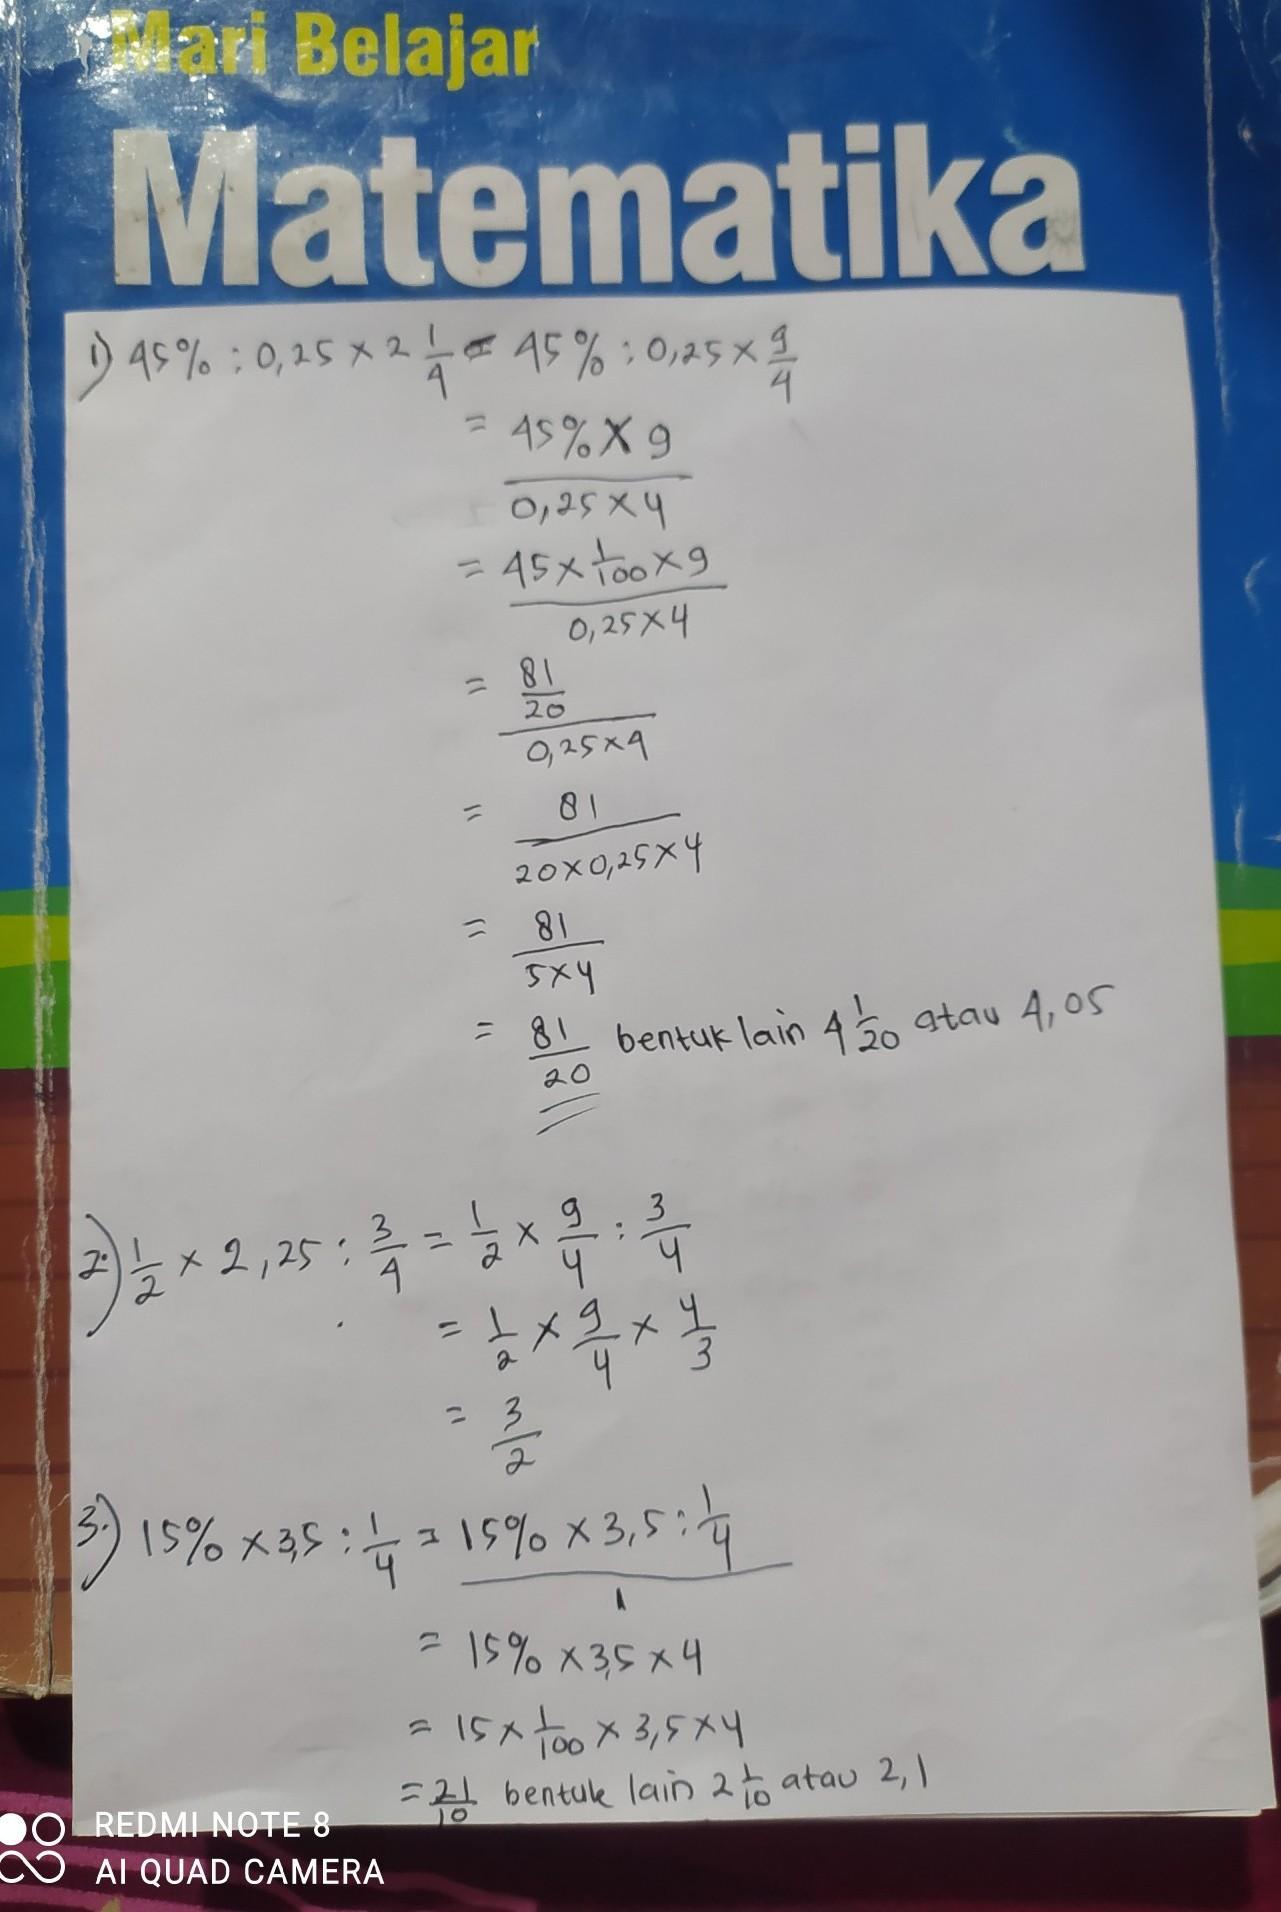 Mari Belajar
Matematika
1) 45% : 0,25 × 2 1/4 = 45% : 0,25 × 9/4
= 45% × 9 / 0,25 × 4
= 45 × 1/100 × 9 / 0,25 × 4
= 81/20 / 0,25 × 4
= 81 / 20 × 0,25 × 4
= 81 / 5 × 4
= 81/20 bentuk lain 4 1/20 atau 4,05
2.) 1/2 × 2,25 : 3/4 = 1/2 × 9/4 : 3/4
= 1/2 × 9/4 × 4/3
= 3/2
3.) 15% × 3,5 : 1/4 = 15% × 3,5 : 1/4 / 1
= 15% × 3,5 × 4
= 15 × 1/100 × 3,5 × 4
= 21/10 bentuk lain 2 1/10 atau 2,1
REDMI NOTE 8
AI QUAD CAMERA